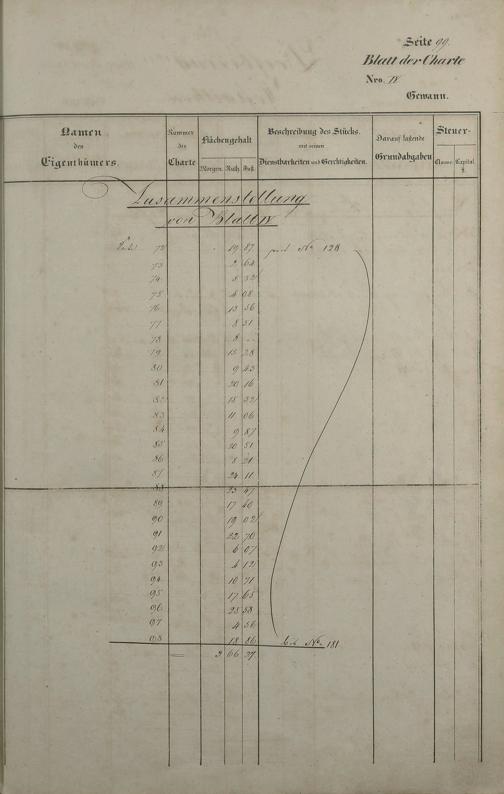 Seite 99.
Blatt der Charte
Nro. IV
Gewann.
Namen des Eigenthümers.
Nummer der Charte
Flächengehalt
Morgen. Ruth. Fuß.
Beschreibung des Stücks. mit seinen Dienstbarkeiten und Gerechtigkeiten.
Darauf lastende Grundabgaben
Steuer-
Classe. Capital. fl.
Zusammenstellung
von Blatt IV
72 19 87 No. 128
73 2 64
74 8 32
75 4 08
76 13 56
77 8 51
78 8 ..
79 15 28
80 9 43
81 20 16
82 18 32
83 11 06
84 9 87
85 20 51
86 8 21
87 24 11
88 23 47
89 17 40
90 19 02
91 22 70
92 6 07
93 4 12
94 16 71
95 17 65
96 28 58
97 4 56
98 18 86 bis No. 181
3 66 27